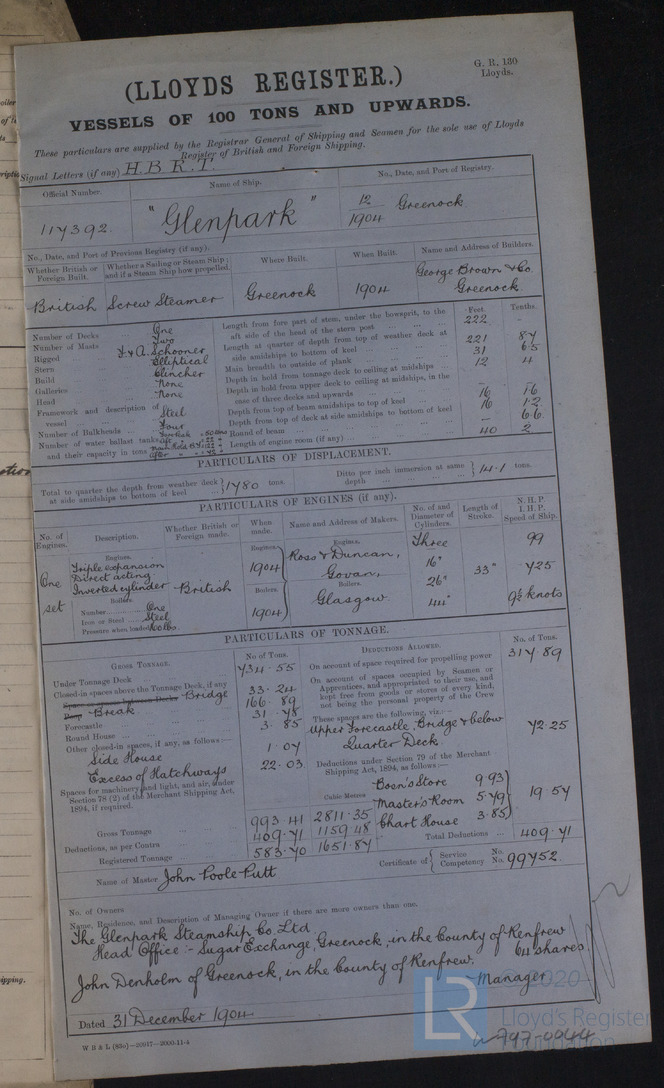 G. R. 130
Lloyds.
(LLOYDS REGISTER.)
VESSELS OF 100 TONS AND UPWARDS.
These particulars are supplied by the Registrar General of Shipping and Seamen for the sole use of Lloyds
Register of British and Foreign Shipping.
Signal Letters (if any) H.B.R.T.
Official Number. Name of Ship. No., Date, and Port of Registry.
117392. "Glenpark" 12/1904 Greenock
No., Date, and Port of Previous Registry (if any).
Whether British or Foreign Built. Whether a Sailing or Steam Ship; and if a Steam Ship how propelled. Where Built. When Built. Name and Address of Builders.
British Screw Steamer Greenock 1904 George Brown & Co. Greenock
Number of Decks One
Number of Masts Two
Rigged F. & A. Schooner
Stern Elliptical
Build Clincher
Galleries None
Head None
Framework and description of vessel Steel
Number of Bulkheads Four
Number of water ballast tanks
and their capacity in tons
Feet. Tenths.
Length from fore part of stem, under the bowsprit, to the aft side of the head of the stern post 222
Length at quarter of depth from top of weather deck at side amidships to bottom of keel 221 87
Main breadth to outside of plank 31 65
Depth in hold from tonnage deck to ceiling at midships 12 4
Depth in hold from upper deck to ceiling at midships, in the case of three decks and upwards
Depth from top of beam amidships to top of keel 16 16
Depth from top of deck at side amidships to bottom of keel 16 12
Round of beam 66
Length of engine room (if any) 40 2
PARTICULARS OF DISPLACEMENT.
Total to quarter the depth from weather deck at side amidships to bottom of keel 1780 tons. Ditto per inch immersion at same depth 14.1 tons.
PARTICULARS OF ENGINES (if any).
No. of Engines. Description. Whether British or Foreign made. When made. Name and Address of Makers. No. of and Diameter of Cylinders. Length of Stroke. N. H. P. I. H. P. Speed of Ship.
One set
Engines.
Triple expansion
Direct acting
Inverted cylinder
Boilers.
Number One
Iron or Steel Steel
Pressure when loaded 160 lbs.
British
Engines. 1904
Boilers. 1904
Engines.
Ross & Duncan,
Govan,
Boilers.
Glasgow
Three
16"
26"
44"
33"
99
725
9½ knots
PARTICULARS OF TONNAGE.
GROSS TONNAGE. No of Tons.
Under Tonnage Deck 734.55
Closed-in spaces above the Tonnage Deck, if any
Bridge 33.24
Poop Break 166.89
Forecastle 31.78
Round House 3.85
Other closed-in spaces, if any, as follows
Side House 1.07
Excess of Hatchways 22.03
Spaces for machinery and light, and air, under
Section 78 (2) of the Merchant Shipping Act,
1894, if required.
Cubic Metres
Gross Tonnage 993.41 2811.35
Deductions, as per Contra 409.71 1159.48
Registered Tonnage 583.70 1651.87
DEDUCTIONS ALLOWED. No. of Tons.
On account of space required for propelling power 317.89
On account of spaces occupied by Seamen or
Apprentices, and appropriated to their use, and
kept free from goods or stores of every kind,
not being the personal property of the Crew
These spaces are the following, viz.:
Upper Forecastle, Bridge & below
Quarter Deck 72.25
Deductions under Section 79 of the Merchant
Shipping Act, 1894, as follows:
Boon's Store 9.93
Master's Room 5.79
Chart House 3.85
19.57
Total Deductions 409.71
Name of Master John Poole Putt
Certificate of Service No.
Competency No. 99752.
No. of Owners
Name, Residence, and Description of Managing Owner if there are more owners than one.
The Glenpark Steamship Co. Ltd
Head Office - Sugar Exchange, Greenock, in the County of Renfrew
64 shares
John Denholm of Greenock, in the County of Renfrew.
Manager
Dated 31 December 1904
W B & L (83o)—20917—2000-11-4
© 2020
LR
Lloyd's Register
Foundation
W797-0044